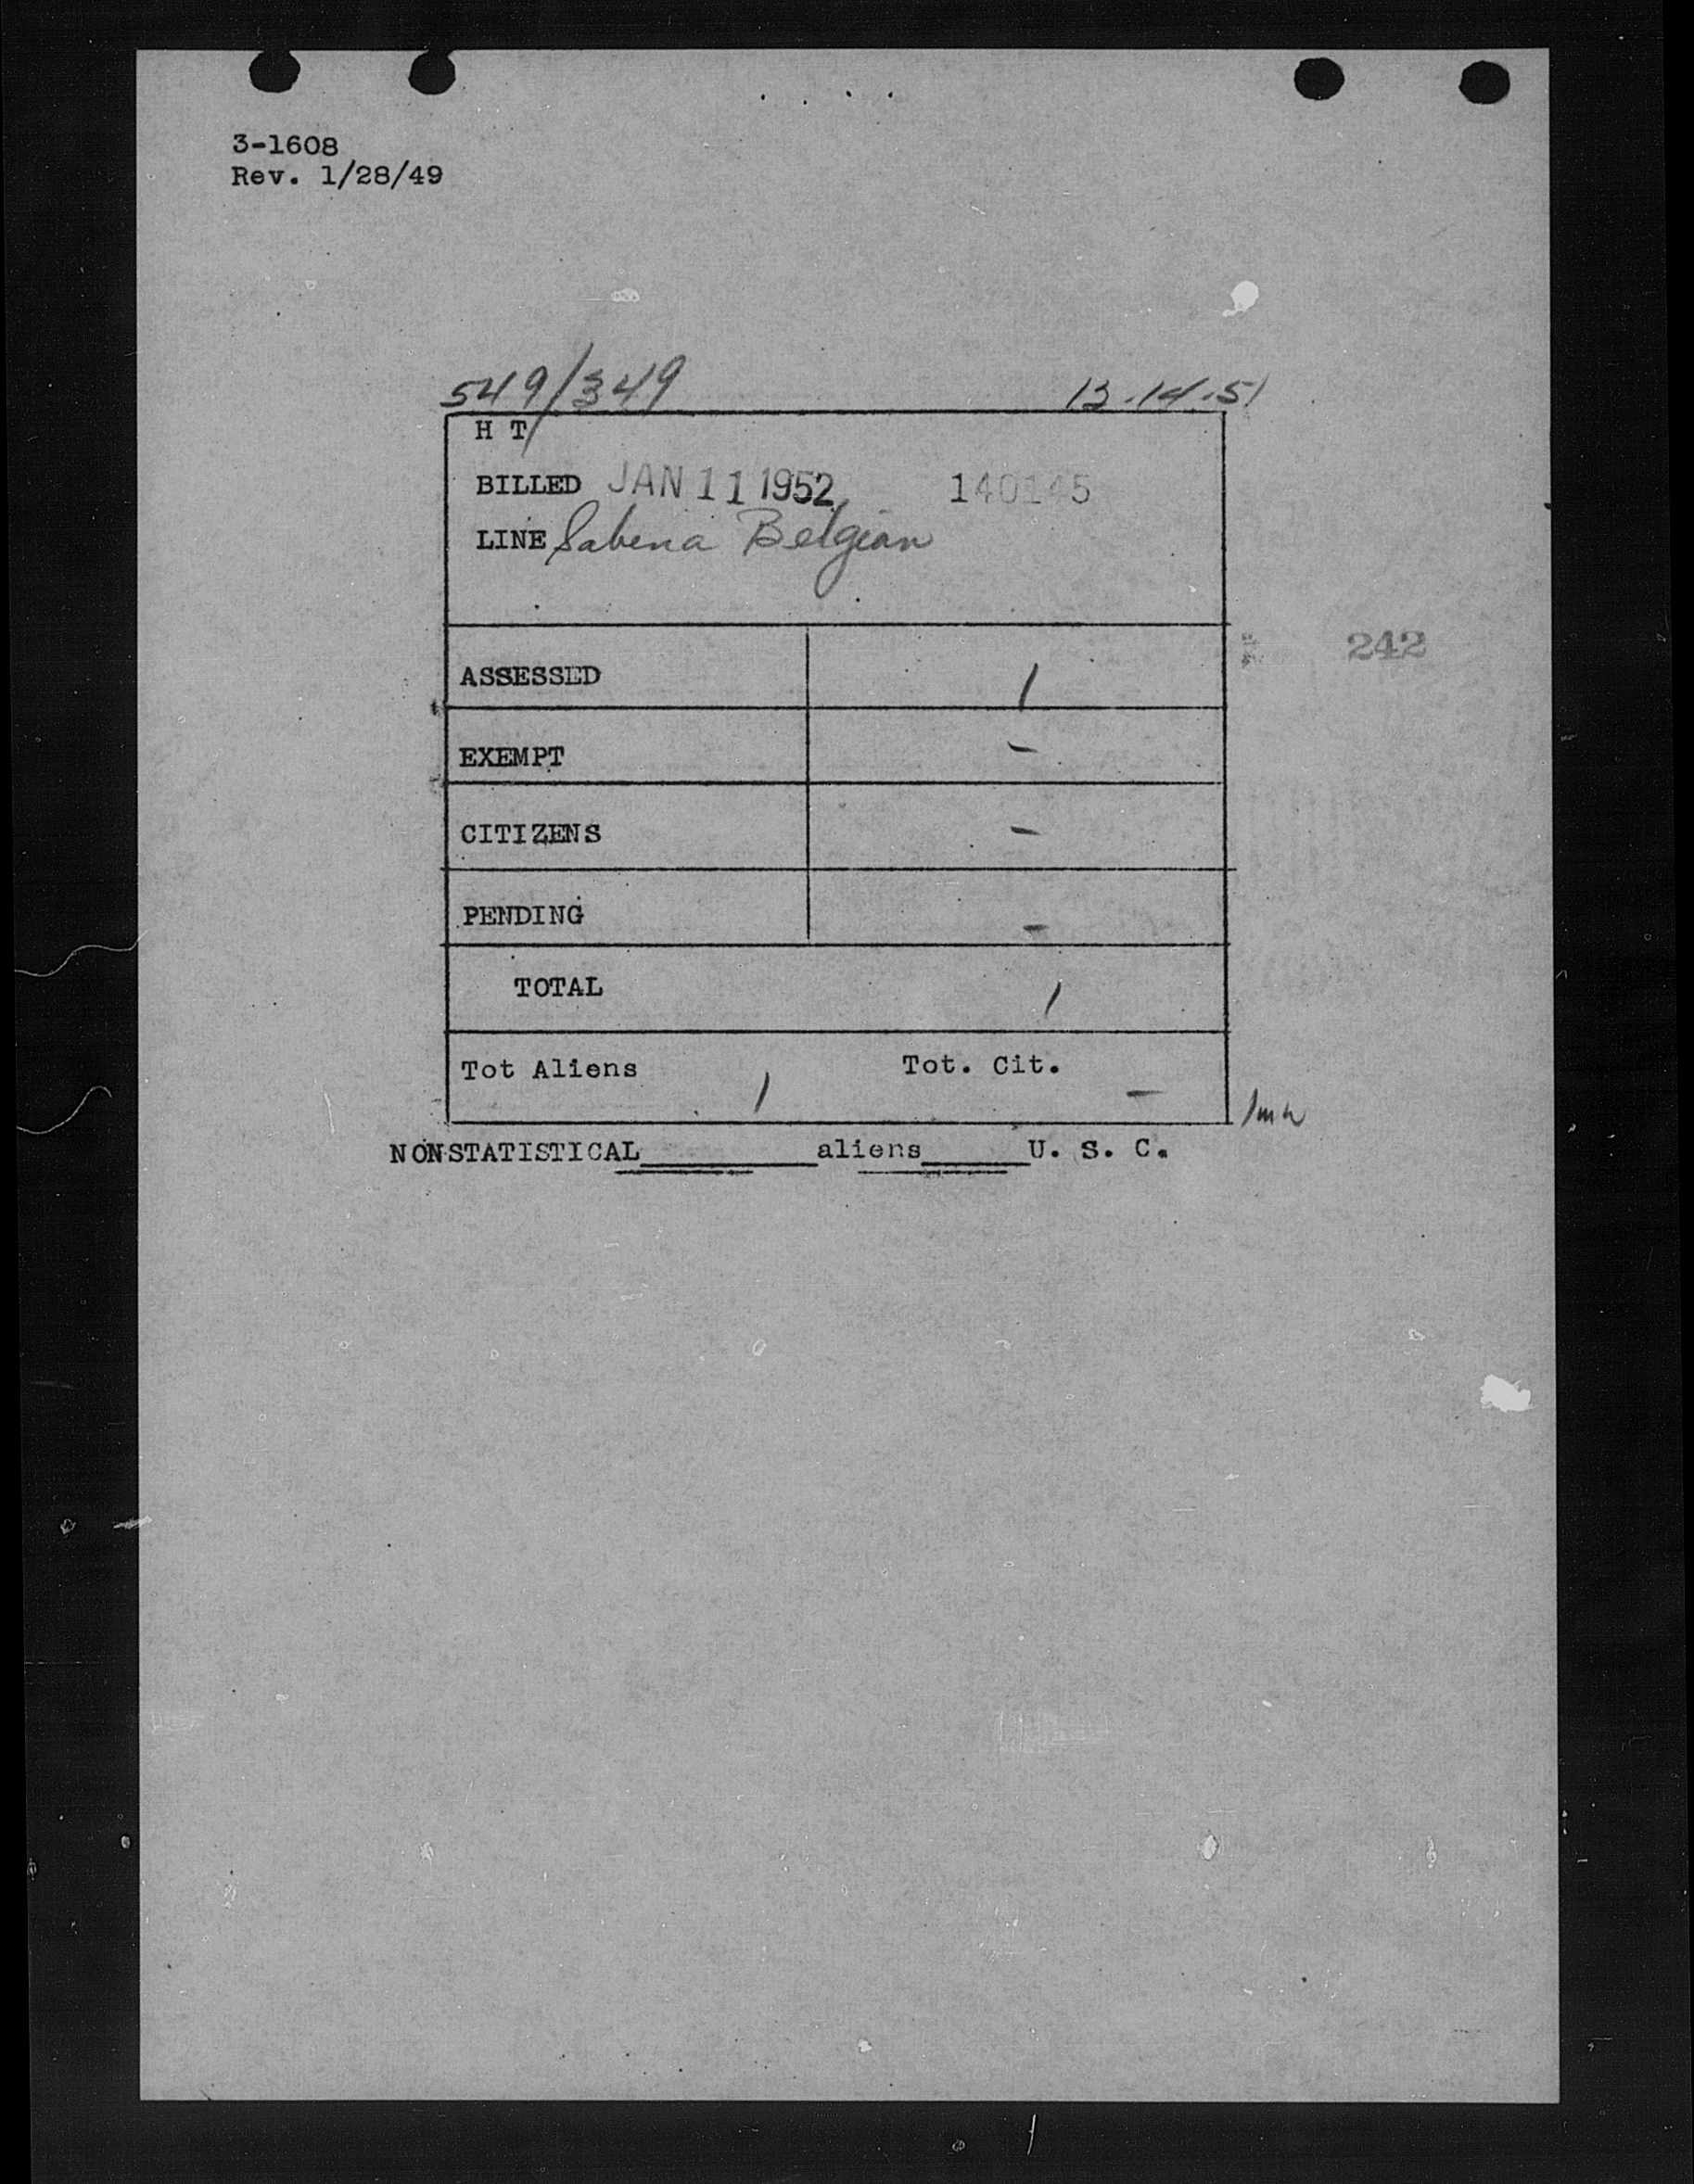 3-1608
Rev. 1/28/49
549/349 12.14.51
H T
BILLED JAN 11 1952 140145
LINE Sabena Belgian
242
ASSESSED 1
EXEMPT -
CITIZENS -
PENDING -
TOTAL 1
Tot Aliens 1 Tot. Cit. -
NONSTATISTICAL________ aliens_____U. S. C.